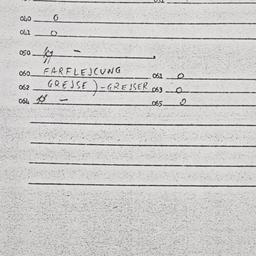 040 0
041 0
050 -
060 FARFLEJCUNG 061 0
062 GREJSE)-GREJSER 063 0
064 ø - 065 0